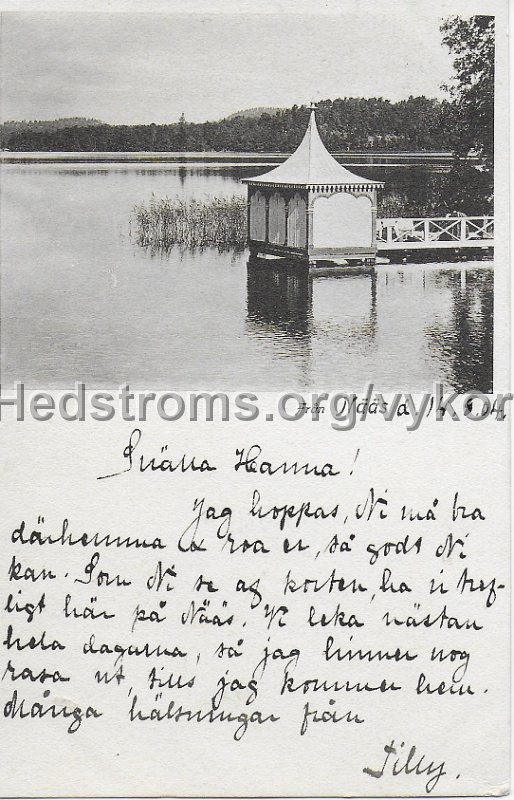 Hedstroms.org/vykort
Från Nääs d. 14.6.04.
Snälla Hanna!
Jag hoppas, Ni må bra
därhemma & roa er, så godt Ni
kan. Som Ni se af korten, ha vi tref-
ligt här på Nääs. Vi leka nästan
hela dagarna, så jag hinner nog
rasa ut, tills jag kommer hem.
Många hälsningar från
Tilly.